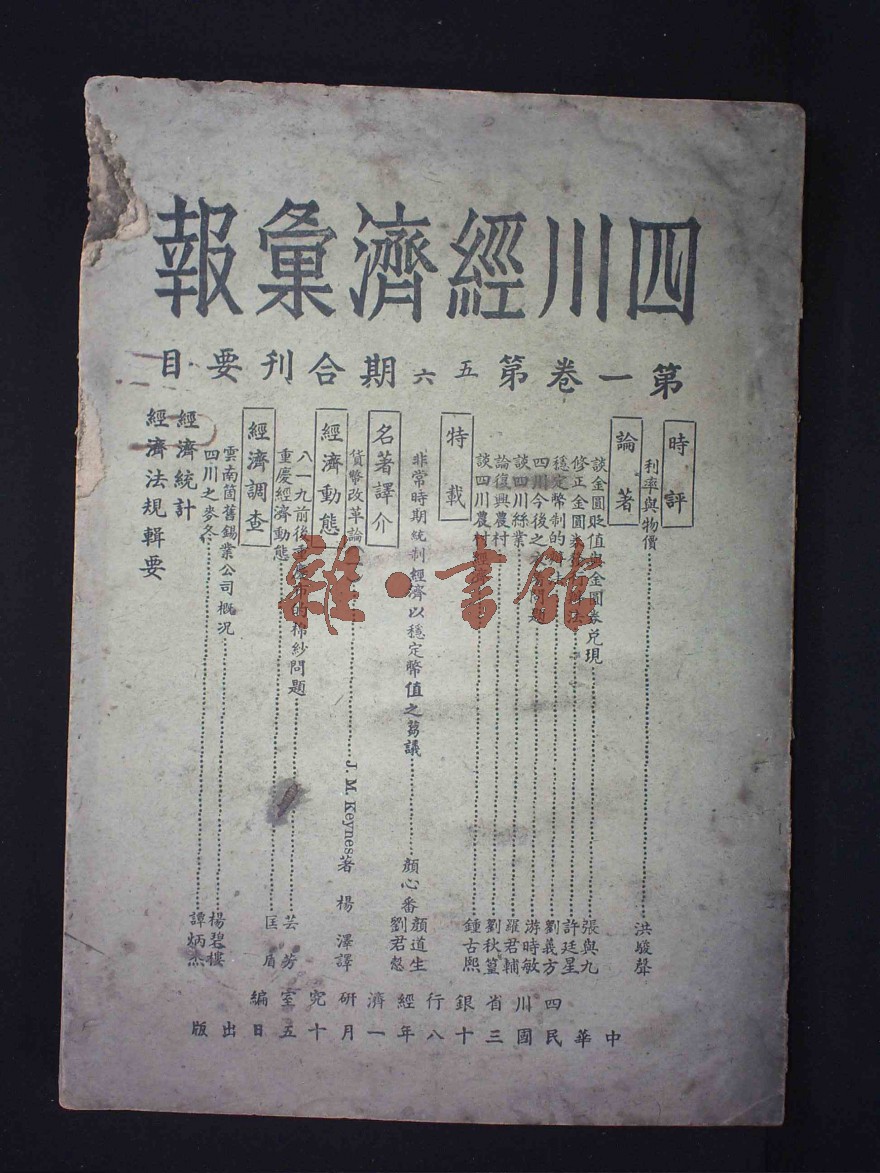 四川經濟彙報
第一卷第五六期合刊要目
時評
利率與物價……洪駿聲
論著
談金圓貶值與金圓券兌現……張與九
修正金圓券……許廷星
穩定幣制的……劉義方
四川今後之……問題……游時敏
談四川絲業……羅君輔
論復興農村……劉秋篁
談四川農村……鍾古熙
特載
非常時期統制經濟以穩定幣值之芻議……顏心畬 顏道生 劉君慤
名著譯介
貨幣改革論……J. M. Keynes著 楊澤譯
經濟動態
八一九前後重慶市的棉紗問題……芸芳
重慶經濟動態……匡盾
經濟調查
雲南箇舊錫業公司概況……楊碧樓
四川之麥冬……譚炳杰
經濟統計
經濟法規輯要
四川省銀行經濟研究室編
中華民國三十八年一月十五日出版
雜·書館